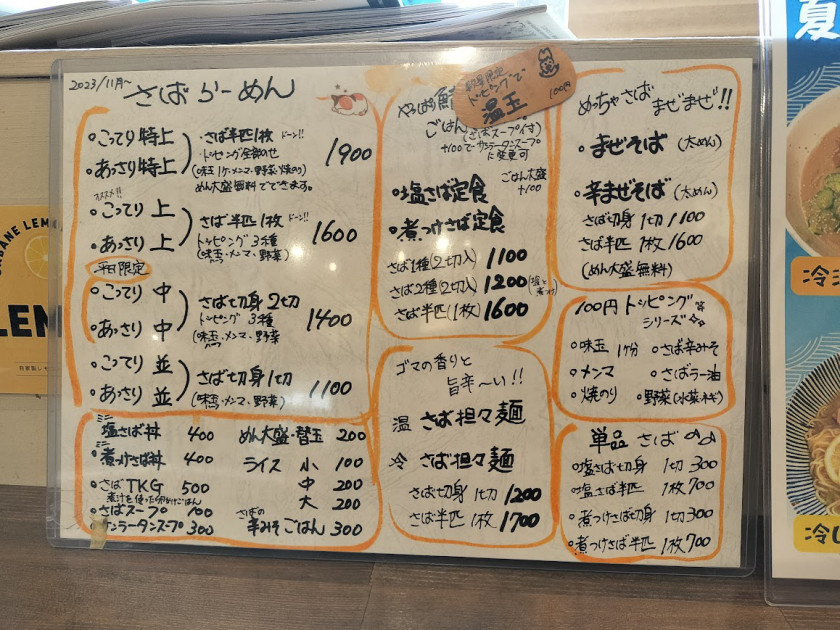 2023/11月〜
さばらーめん
・こってり 特上
・あっさり 特上
・さば半匹1枚 ドーン!!
・トッピング全部のせ
(味玉1ケ・メンマ・野菜・焼のり)
めん大盛無料でできます。
1900
オススメ!!
・こってり 上
・あっさり 上
さば半匹1枚 ドーン!!
トッピング3種
(味玉・メンマ・野菜)
1600
平日限定
・こってり 中
・あっさり 中
さば切身2切
トッピング3種
(味玉・メンマ・野菜)
1400
・こってり 並
・あっさり 並
さば切身1切
(味玉・メンマ・野菜)
1100
ミニ
・塩さば丼 400
ミニ
・煮つけさば丼 400
・さばTKG 500
煮汁を使った卵かけごはん
・さばスープ 100
・サンラータンスープ 300
めん大盛・替玉 200
ライス 小 100
中 200
大 200
さばの
辛みそごはん 300
やっぱり
ごはん
(さばスープ付)
+100でサンラータンスープ
に変更可
数量限定
トッピングで
温玉
100円
・塩さば定食
ごはん大盛
+100
・煮つけさば定食
さば1種(2切入) 1100
さば2種(2切入) 1200 (塩と煮つけ)
さば半匹(1枚) 1600
ゴマの香りと
旨辛〜い!!
温 さば担々麺
冷 さば担々麺
さば切身 1切 1200
さば半匹 1枚 1700
めっちゃさば
まぜまぜ!!
・まぜそば (太めん)
・辛まぜそば (太めん)
さば切身 1切 1100
さば半匹 1枚 1600
(めん大盛無料)
100円トッピング
シリーズ
・味玉 1ケ分
・メンマ
・焼のり
・さば辛みそ
・さばラー油
・野菜(水菜・ネギ)
単品 さば
・塩さば切身 1切 300
・塩さば半匹 1枚 700
・煮つけさば切身 1切 300
・煮つけさば半匹 1枚 700
夏